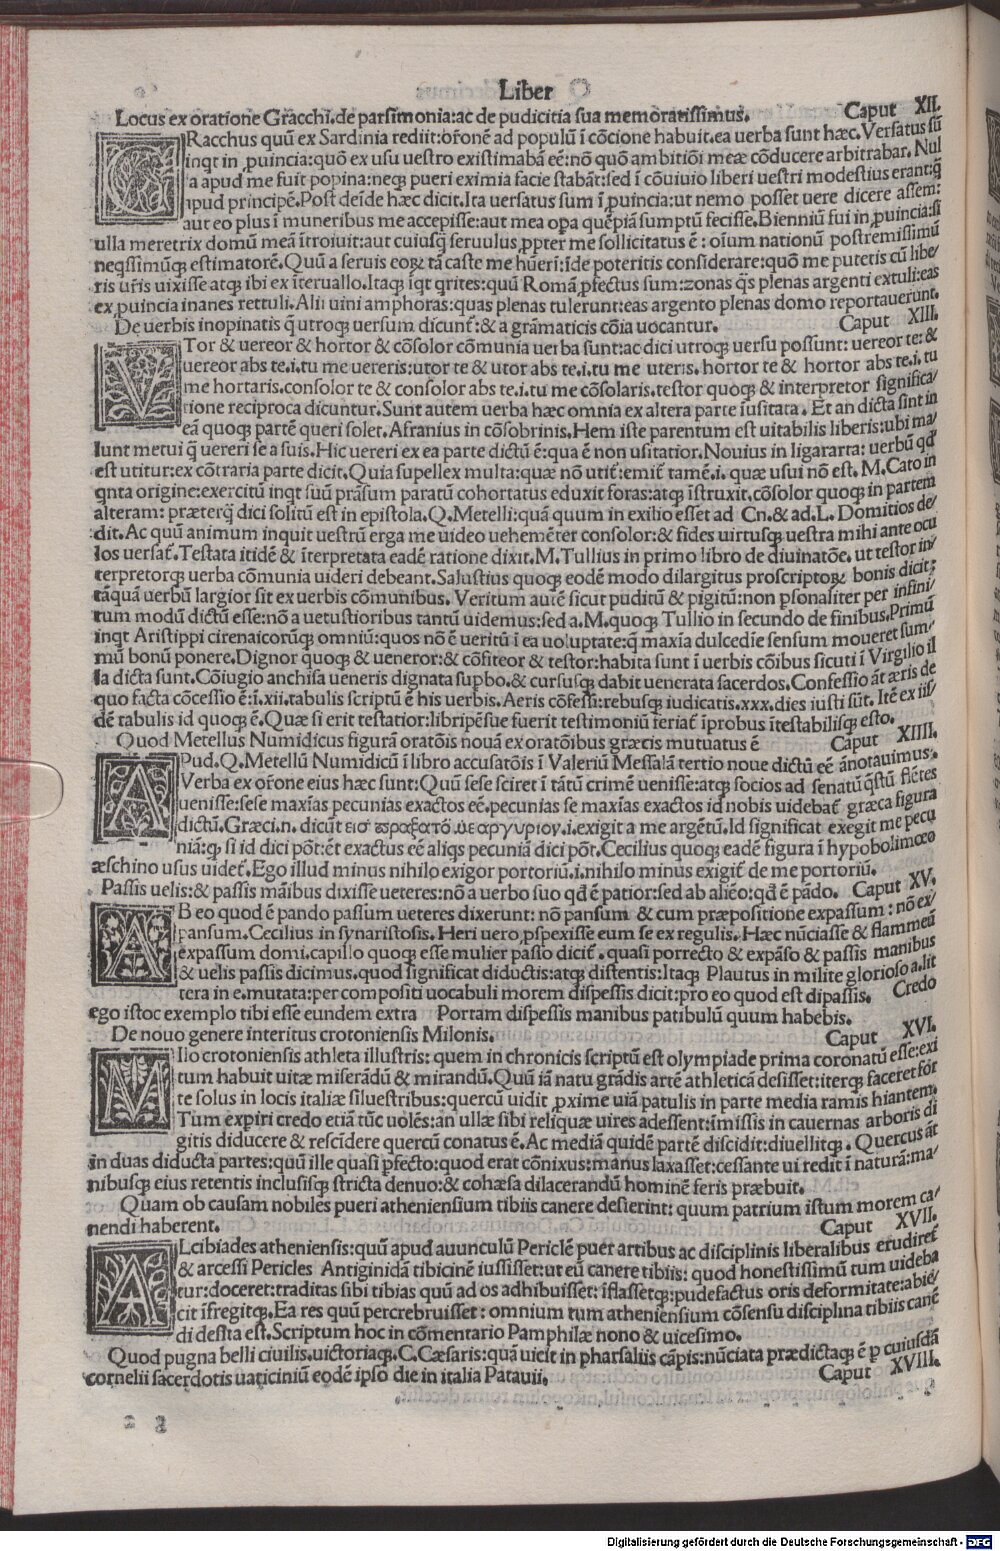 Liber
Locus ex oratione Gracchi.de parsimonia:ac de pudicitia sua memoratissimus. Caput XII.
GRacchus quū ex Sardinia rediit:orōnē ad populū ī cōcione habuit.ea uerba sunt hæc.Versatus sū
inqt in ꝓuincia:quō ex usu uestro existimabā eē:nō quō ambitiōi meæ cōducere arbitrabar. Nul
la apud me fuit popina:neqꝫ pueri eximia facie stabāt:sed ī cōuiuio liberi uestri modestius erant:q̄
apud principē.Post deīde hæc dicit.Ita uersatus sum ī ꝓuincia:ut nemo posset uere dicere assem:
aut eo plus ī muneribus me accepisse:aut mea opa quēpiā sumptū fecisse.Bienniū fui in ꝓuincia:si
ulla meretrix domū meā ītroiuit:aut cuiusq̄ seruulus ꝓpter me sollicitatus ē:oīum nationū postremissimū
neqssimūqꝫ estimatorē.Quū a seruis eoꝝ tā caste me hūerī:īde poteritis considerare:quō me putetis cū libe/
ris uīis uixisse atqꝫ ibi ex īteruallo.Itaqꝫ īqt qrites:quū Romā ꝓfectus sum:zonas q̄s plenas argenti extuli:eas
ex ꝓuincia inanes rettuli.Alii uini amphoras:quas plenas tulerunt:eas argento plenas domo reportauerunt.
De uerbis inopinatis q̄ utroqꝫ uersum dicunt̄:& a grāmaticis cōia uocantur. Caput XIII.
VTor & uereor & hortor & cōsolor cōmunia uerba sunt:ac dici utroqꝫ uersu possunt: uereor te: &
uereor abs te.i.tu me uereris:utor te & utor abs te.i.tu me uteris. hortor te & hortor abs te.i. tu
me hortaris.consolor te & consolor abs te.i.tu me cōsolaris.testor quoqꝫ & interpretor significa/
tione reciproca dicuntur.Sunt autem uerba hæc omnia ex altera parte īusitata. Et an dicta sint in
eā quoqꝫ partē queri solet.Afranius in cōsobrinis.Hem iste parentum est uitabilis liberis:ubi ma/
lunt metui q̄ uereri se a suis.Hic uereri ex ea parte dictū ē:qua ē non usitatior.Nouius in ligararta: uerbū qd̄
est utitur:ex cōtraria parte dicit.Quia supellex multa:quæ nō utit̄:emit̄ tamē.i. quæ usui nō est. M.Cato in
qnta origine:exercitū inqt suū prāsum paratū cohortatus eduxit foras:atqꝫ īstruxit.cōsolor quoqꝫ in partem
alteram: præterq̄ dici solitū est in epistola.Q.Metelli:quā quum in exilio esset ad Cn.& ad.L.Domitios de/
dit.Ac quū animum inquit uestrū erga me uideo uehemēter consolor:& fides uirtusqꝫ uestra mihi ante ocu
los uersat̄.Testata itidē & īterpretata eadē ratione dixit.M.Tullius in primo libro de diuinatōe. ut testor in/
terpretorqꝫ uerba cōmunia uideri debeant.Salustius quoqꝫ eodē modo dilargitus proscriptoꝝ bonis dicit:
tāquā uerbū largior sit ex uerbis cōmunibus. Veritum autē sicut puditū & pigitū:non ꝑsonaliter per infini/
tum modū dictū esse:nō a uetustioribus tantū uidemus:sed a.M.quoqꝫ Tullio in secundo de finibus.Primū
inqt Aristippi cirenaicorūqꝫ omniū:quos nō ē ueritū ī ea uoluptate:q̄ maxīa dulcedīe sensum moueret sum/
mū bonū ponere.Dignor quoqꝫ & ueneror:& cōfiteor & testor:habita sunt ī uerbis cōibus sicuti ī Virgilio il
la dicta sunt.Cōiugio anchisa ueneris dignata supbo.& cursusqꝫ dabit uenerata sacerdos.Confessio āt æris de
quo facta cōcessio ē:ī.xii.tabulis scriptū ē his uerbis.Aeris cōfessi:rebusqꝫ iudicatis.xxx.dies iusti sūt. Itē ex iis/
dē tabulis id quoqꝫ ē.Quæ si erit testatior:libripēsue fuerit testimoniū feriat̄ īprobus ītestabilisqꝫ esto.
Quod Metellus Numidicus figurā oratōis nouā ex oratōibus græcis mutuatus ē Caput XIIII.
APud.Q.Metellū Numidicū ī libro accusatōis ī Valeriū Messalā tertio noue dictū eē ānotauimus.
Verba ex orōne eius hæc sunt:Quū sese sciret ī tātū crimē uenisse:atqꝫ socios ad senatū q̄stū flētes
uenisse:sese maxīas pecunias exactos eē.pecunias se maxīas exactos id nobis uidebat̄ græca figura
dictū.Græci.n. dicūt εισ πραξατό με αργυριον.i.exigit a me argētū.Id significat exegit me pecu
niā:qꝫ si id dici pōt:ēt exactus eē aliqs pecuniā dici pōt.Cecilius quoqꝫ eadē figura ī hypobolimæo
æschino usus uidet̄.Ego illud minus nihilo exigor portoriū.i.nihilo minus exigit̄ de me portoriū.
Passis uelis:& passis māibus dixisse ueteres:nō a uerbo suo qd̄ ē patior:sed ab aliēo:qd̄ ē pādo. Caput XV.
AB eo quod ē pando passum ueteres dixerunt: nō pansum & cum præpositione expassum: nō ex/
pansum.Cecilius in synaristosis.Heri uero ꝓspexisse eum se ex regulis. Hæc nūciasse & flammeū
expassum domi.capillo quoqꝫ esse mulier passo dicit̄.quasi porrecto & expāso & passis manibus
& uelis passis dicimus.quod significat diductis:atqꝫ distentis:Itaqꝫ Plautus in milite glorioso.a.lit
tera in e.mutata:per compositi uocabuli morem dispessis dicit:pro eo quod est dipassis. Credo
ego istoc exemplo tibi esse eundem extra Portam dispessis manibus patibulū quum habebis.
De nouo genere interitus crotoniensis Milonis. Caput XVI.
MIlo crotoniensis athleta illustris: quem in chronicis scriptū est olympiade prima coronatū esse:exi
tum habuit uitæ miserādū & mirandū.Quū iā natu grādis artē athleticā desisset:iterqꝫ faceret for
te solus in locis italiæ siluestribus:quercū uidit ꝓxime uiā patulis in parte media ramis hiantem.
Tum expiri credo etiā tūc uolēs:an ullæ sibi reliquæ uires adessent:īmissis in cauernas arboris di
gitis diducere & rescīdere quercū conatus ē.Ac mediā quidē partē discidit:diuellitqꝫ. Quercus āt
in duas diducta partes:quū ille quasi ꝓfecto:quod erat cōnixus:manus laxasset:cessante ui redit ī naturā:ma/
nibusqꝫ eius retentis inclusisqꝫ stricta denuo:& cohæsa dilacerandū hominē feris præbuit.
Quam ob causam nobiles pueri atheniensium tibiis canere desierint: quum patrium istum morem ca/
nendi haberent. Caput XVII.
ALcibiades atheniensis:quū apud auunculū Periclē puer artibus ac disciplinis liberalibus erudiret̄
& arcessi Pericles Antiginidā tibicinē iussisset:ut eū canere tibiis: quod honestissimū tum uideba
tur:doceret:traditas sibi tibias quū ad os adhibuisset:īflassetqꝫ:pudefactus oris deformitate:abie/
cit īfregitqꝫ.Ea res quū percrebruisset: omnium tum atheniensium cōsensu disciplina tibiis canē
di desita est.Scriptum hoc in cōmentario Pamphilæ nono & uicesimo.
Quod pugna belli ciuilis.uictoriaqꝫ.C.Cæsaris:quā uicit in pharsaliis cāpis:nūciata prædictaqꝫ ē ꝑ cuiusdā
cornelii sacerdotis uaticiniū eodē ipso die in italia Patauii. Caput XVIII.
Digitalisierung gefördert durch die Deutsche Forschungsgemeinschaft - DFG